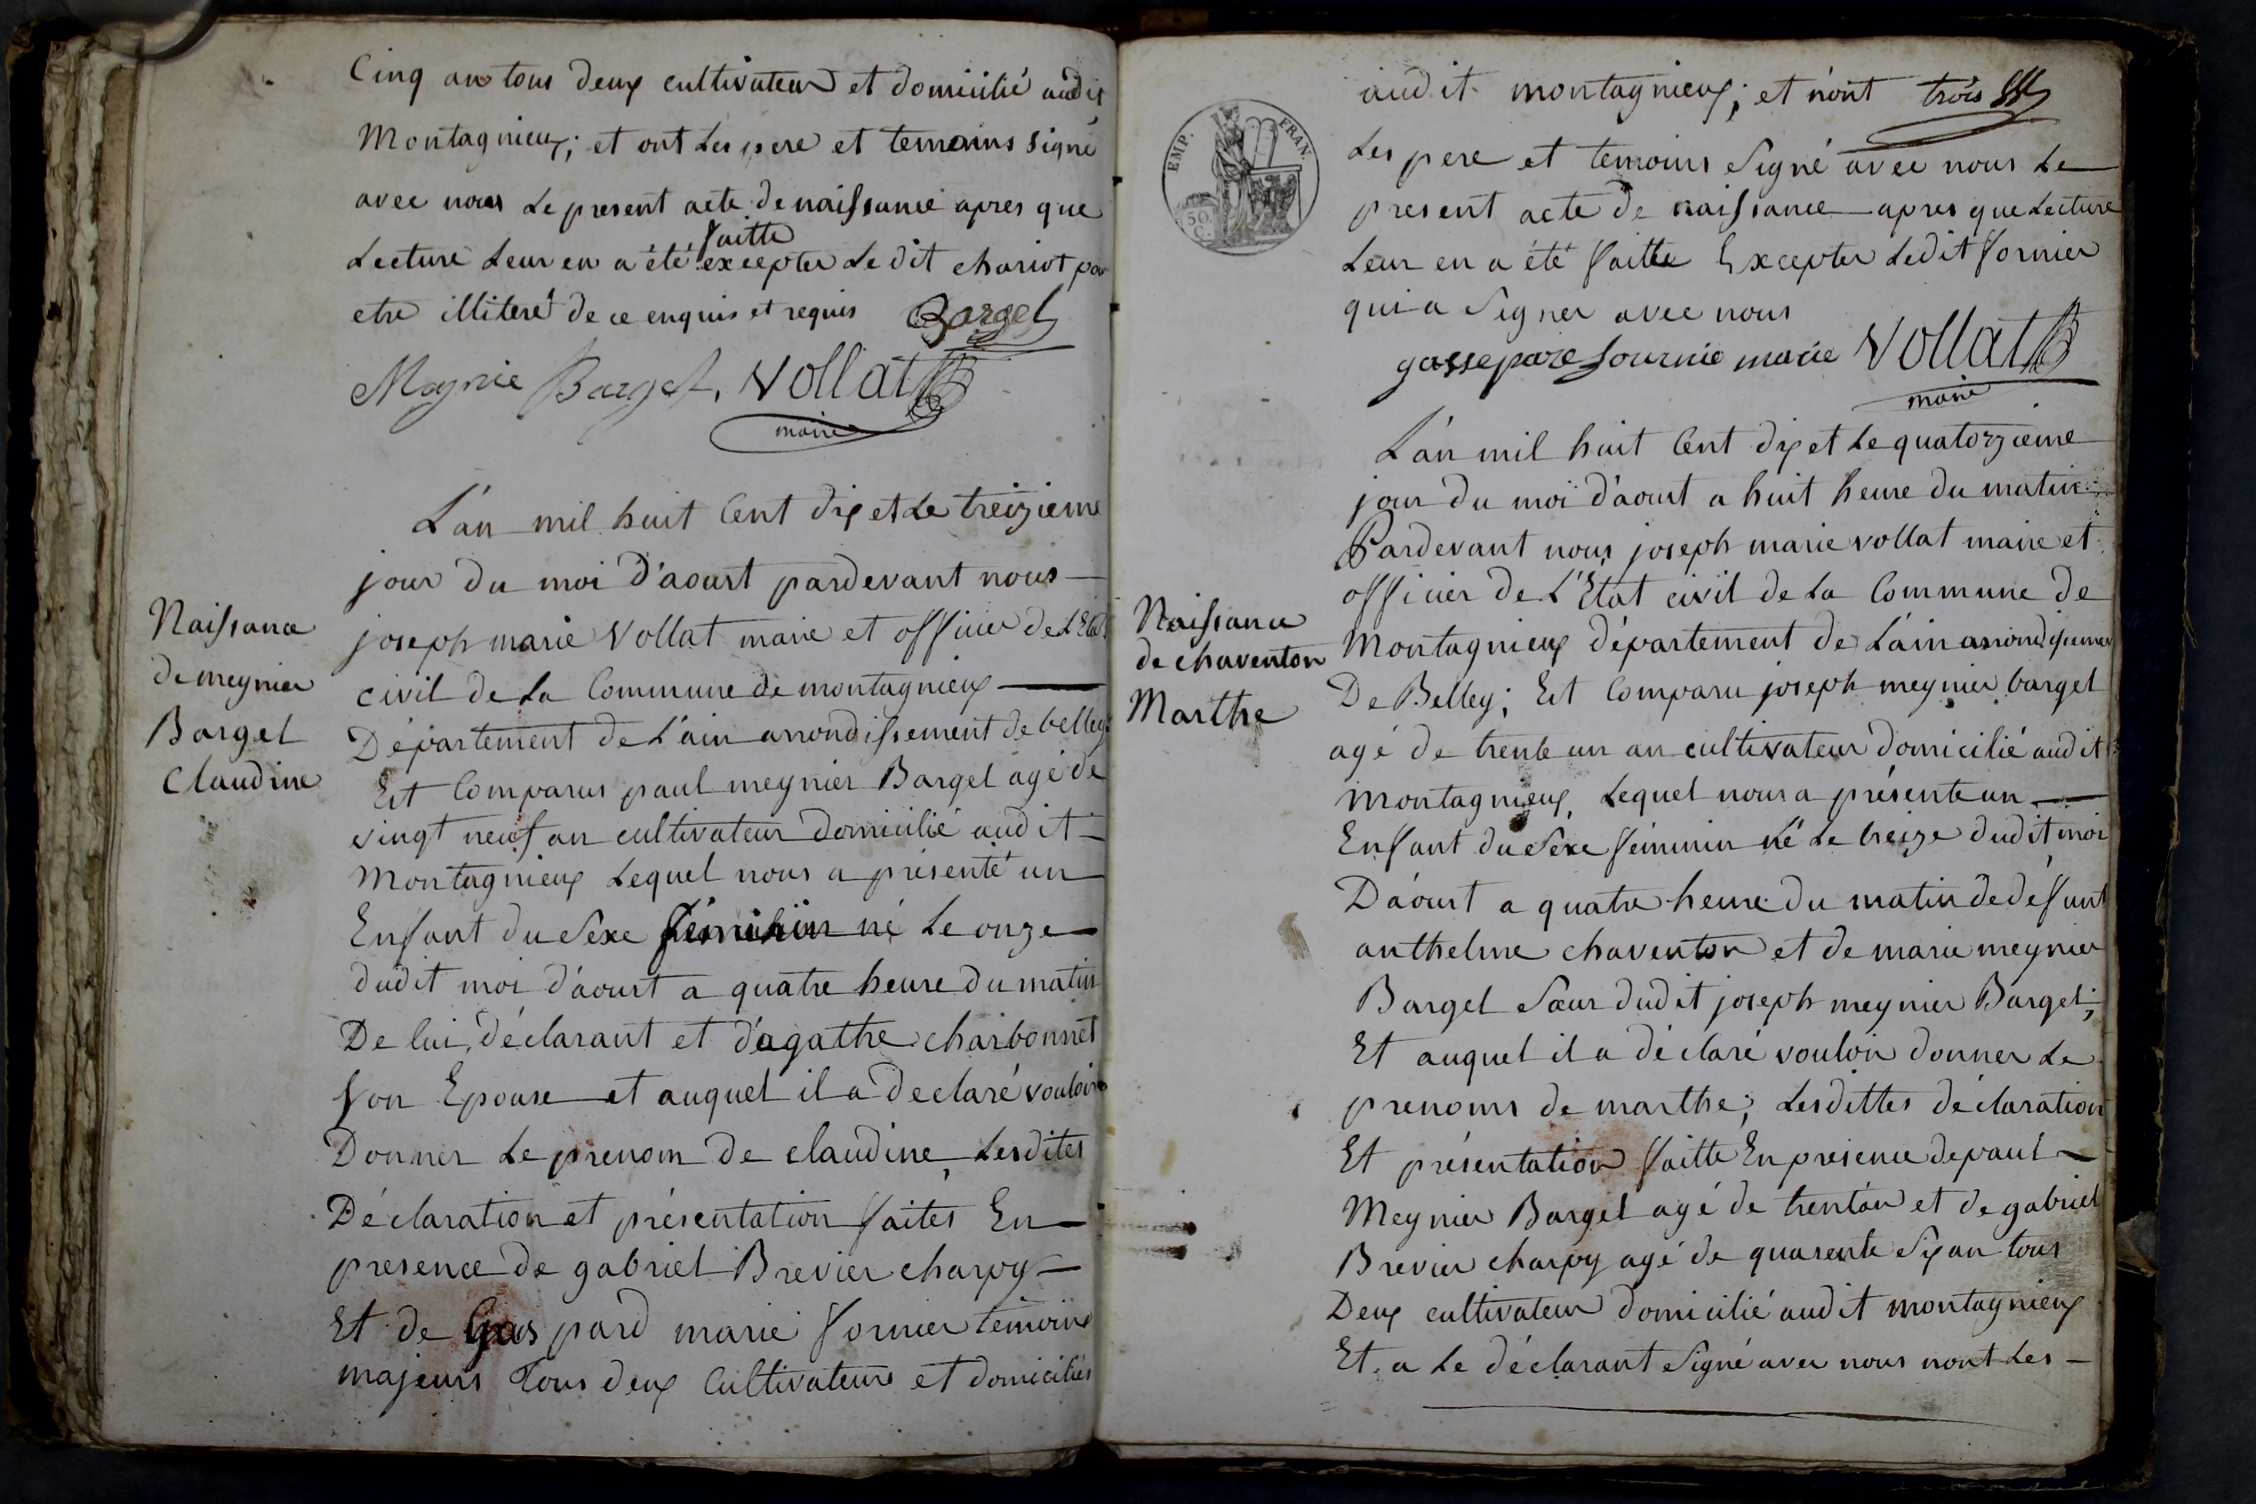 Cinq an tous deux cultivateur et domicilié audit
Montagnieux; et ont Les pere et temoins signé
avec nous Le present acte de naissance apres que
faitte
Lecture Leur en a été excepter Ledit chariot pour
etre illiteré de ce enquis et requis Bargel
Meynie Bargel, Vollat
maire
L'an mil huit Cent dix et Le treizieme
jour du moi d'aoust pardevant nous
joseph marie Vollat maire et officier de L'Etat
civil de La Commune de montagnieux
Naissance
de meynier
Bargel
Claudine
Département de L'ain arrondissement de belley;
Est Comparus paul meynier Bargel agé de
vingt neuf an cultivateur domicilié audit
Montagnieux Lequel nous a présenté un
Enfant du Sexe féminin né Le onze
dudit moi d'aoust a quatre heure du matin
De lui, déclarant et d'agathe charbonnet
Son Epouse et auquel il a declaré vouloir
Donner Le prenom de claudine, Lesdites
Déclaration et présentation faites En
presence de gabriel Brevier charpy
Et de Gaspard marie fornier témoins
majeurs Tous deux Cultivateurs et domiciliés
EMP. FRAN.
50.
C.
audit montagnieux; et n'ont trois
Les pere et temoins Signé avec nous Le
present acte de naissance apres que Lecture
Leur en a été faitte Excepter Ledit fornier
qui a Signer avec nous
gassepare fournie marie Vollat
maire
L'an mil huit Cent dix et Le quatorzieme
jour du moi d'aoust a huit heure du matin
Pardevant nous joseph marie vollat maire et
officier de L'Etat civil de La Commune de
Naissance
de chaventon
Marthe
Montagnieux département de L'ain
De Belley; Est Comparu joseph meynier bargel
agé de trente un an cultivateur domicilié audit
montagnieux, Lequel nous a présente un
Enfant du Sexe féminin né Le treize dudit moi
D'aoust a quatre heure du matin de défunt
anthelme chaventon et de marie meynier
Bargel Sœur dudit joseph meynier Bargel;
Et auquel il a déclaré vouloir donner Le
prenoms de marthe; Lesdittes déclaration
Et présentation faitte En presence de paul
Meynier Bargel agé de trent'an et de gabriel
Brevier charpy agé de quarente Six an tous
Deux cultivateur domicilié audit montagnieux
Et a Le déclarant Signé avec nous nont Les